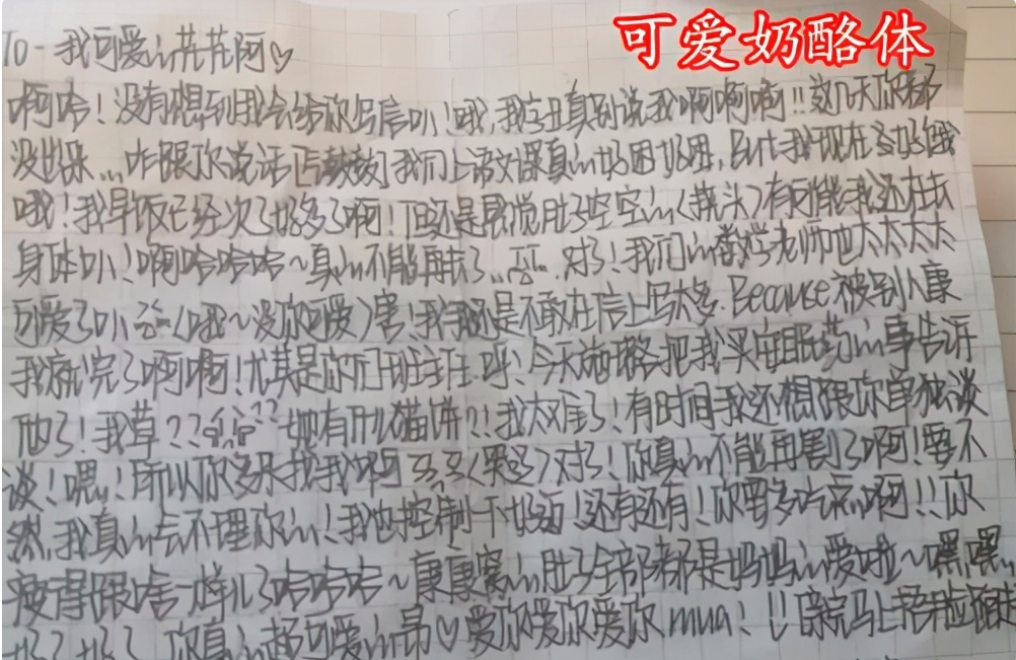 可爱奶酪体
To-我可爱的花花阿♡
啊哈!没有想到我会给你写信叭!哦,我字丑真别说我啊啊啊!!这几天你都
没出来...昨跟你说话 我们上语文课真的好困好困,But我现在 好饿
哦!我早饭已经次了好多了啊!但还是感觉肚子空空的(挠头)有可能我还在长
身体叭!啊哈哈哈~真的不能再长了..对了!我们的数学老师也太太太太
可爱了叭(哦~没你可爱)害!我 还是不敢在信上写太多.Because被别人康
我就完了啊啊!尤其是你们班主任 呼!今天 把我买安眠药的事告诉
他了!我草??她有什么猫饼?!我太难了!有时间我还想跟你单独谈
谈!嗯!所以你多来找我啊 (哭) 对了!你真的不能再割了啊!要不
然,我真的会不理你的!我也控制一下好 !还有还有!你要多吃点啊!!你
瘦得跟啥 了哈哈哈~康康窝的肚子全部都是妈妈的爱啦~嘿嘿
好了好了 你真的超可爱的 ♡爱你爱你爱你mua!!